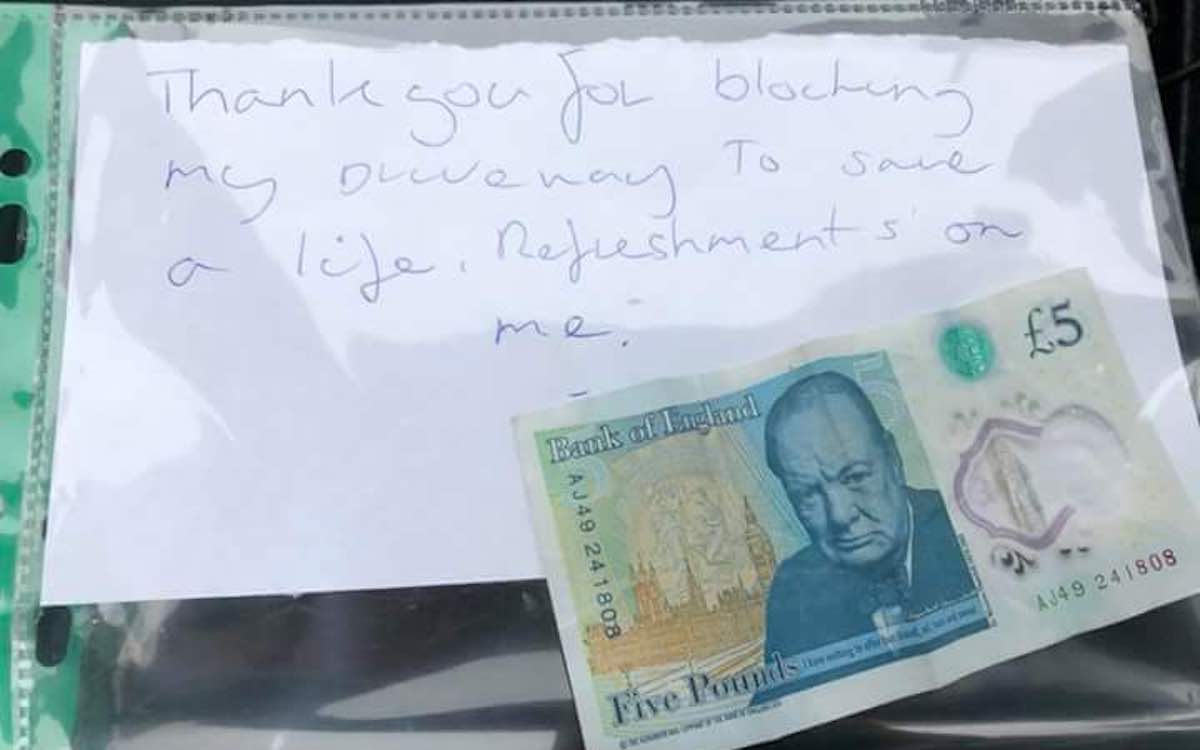 Thank you for blocking
my Driveway To save
a life. Refreshments' on
me.
£5
Bank of England
AJ49 241808
AJ49 241808
Five Pounds